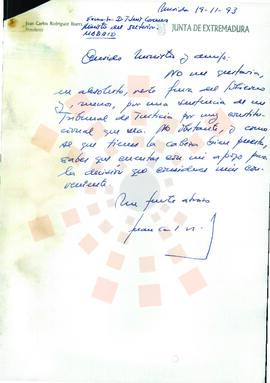 Mérida 19-11-93
Juan Carlos Rodríguez Ibarra
Presidente
JUNTA DE EXTREMADURA
Ministro del Interior
MADRID
Querido Ministro y amigo:
No me gustaría,
en absoluto, verte fuera del Gobierno
y, menos, por una sentencia de un
Tribunal de Justicia por muy constitu-
cional que sea. No obstante, y como
se que tienes la cabeza bien puesta,
sabes que cuentas con mi apoyo para
la decisión que consideres más con-
veniente.
Un fuerte abrazo